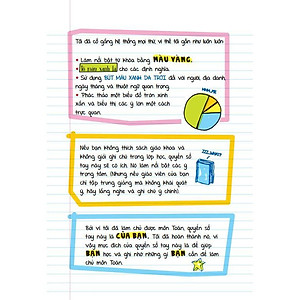 Tôi đã cố gắng hệ thống mọi thứ, vì thế tôi gần như luôn luôn
• Làm nổi bật từ khóa bằng MÀU VÀNG.
cho các định nghĩa.
• Sử dụng BÚT MÀU XANH DA TRỜI đối với người, địa danh,
ngày tháng và thuật ngữ quan trọng.
• Phác thảo một biểu đồ tròn xinh
xắn và biểu thị các ý lớn một cách
trực quan.
Nếu bạn không thích sách giáo khoa và
không giỏi ghi chú trong lớp học, quyển sổ
tay này sẽ có ích. Nó làm nổi bật các ý
trọng tâm. (Nhưng nếu giáo viên của bạn
chỉ tập trung giảng mà không khái quát
ý, hãy lắng nghe và ghi chú ý chính).
ZZZ...WHAT?
Bởi vì tôi đã làm chủ được môn Toán, quyển sổ
tay này là CỦA BẠN. Tôi đã hoàn thành nó, vì
vậy mục đích của quyển sổ tay này là để giúp
BẠN học và ghi nhớ những gì BẠN cần để làm
chủ môn Toán.